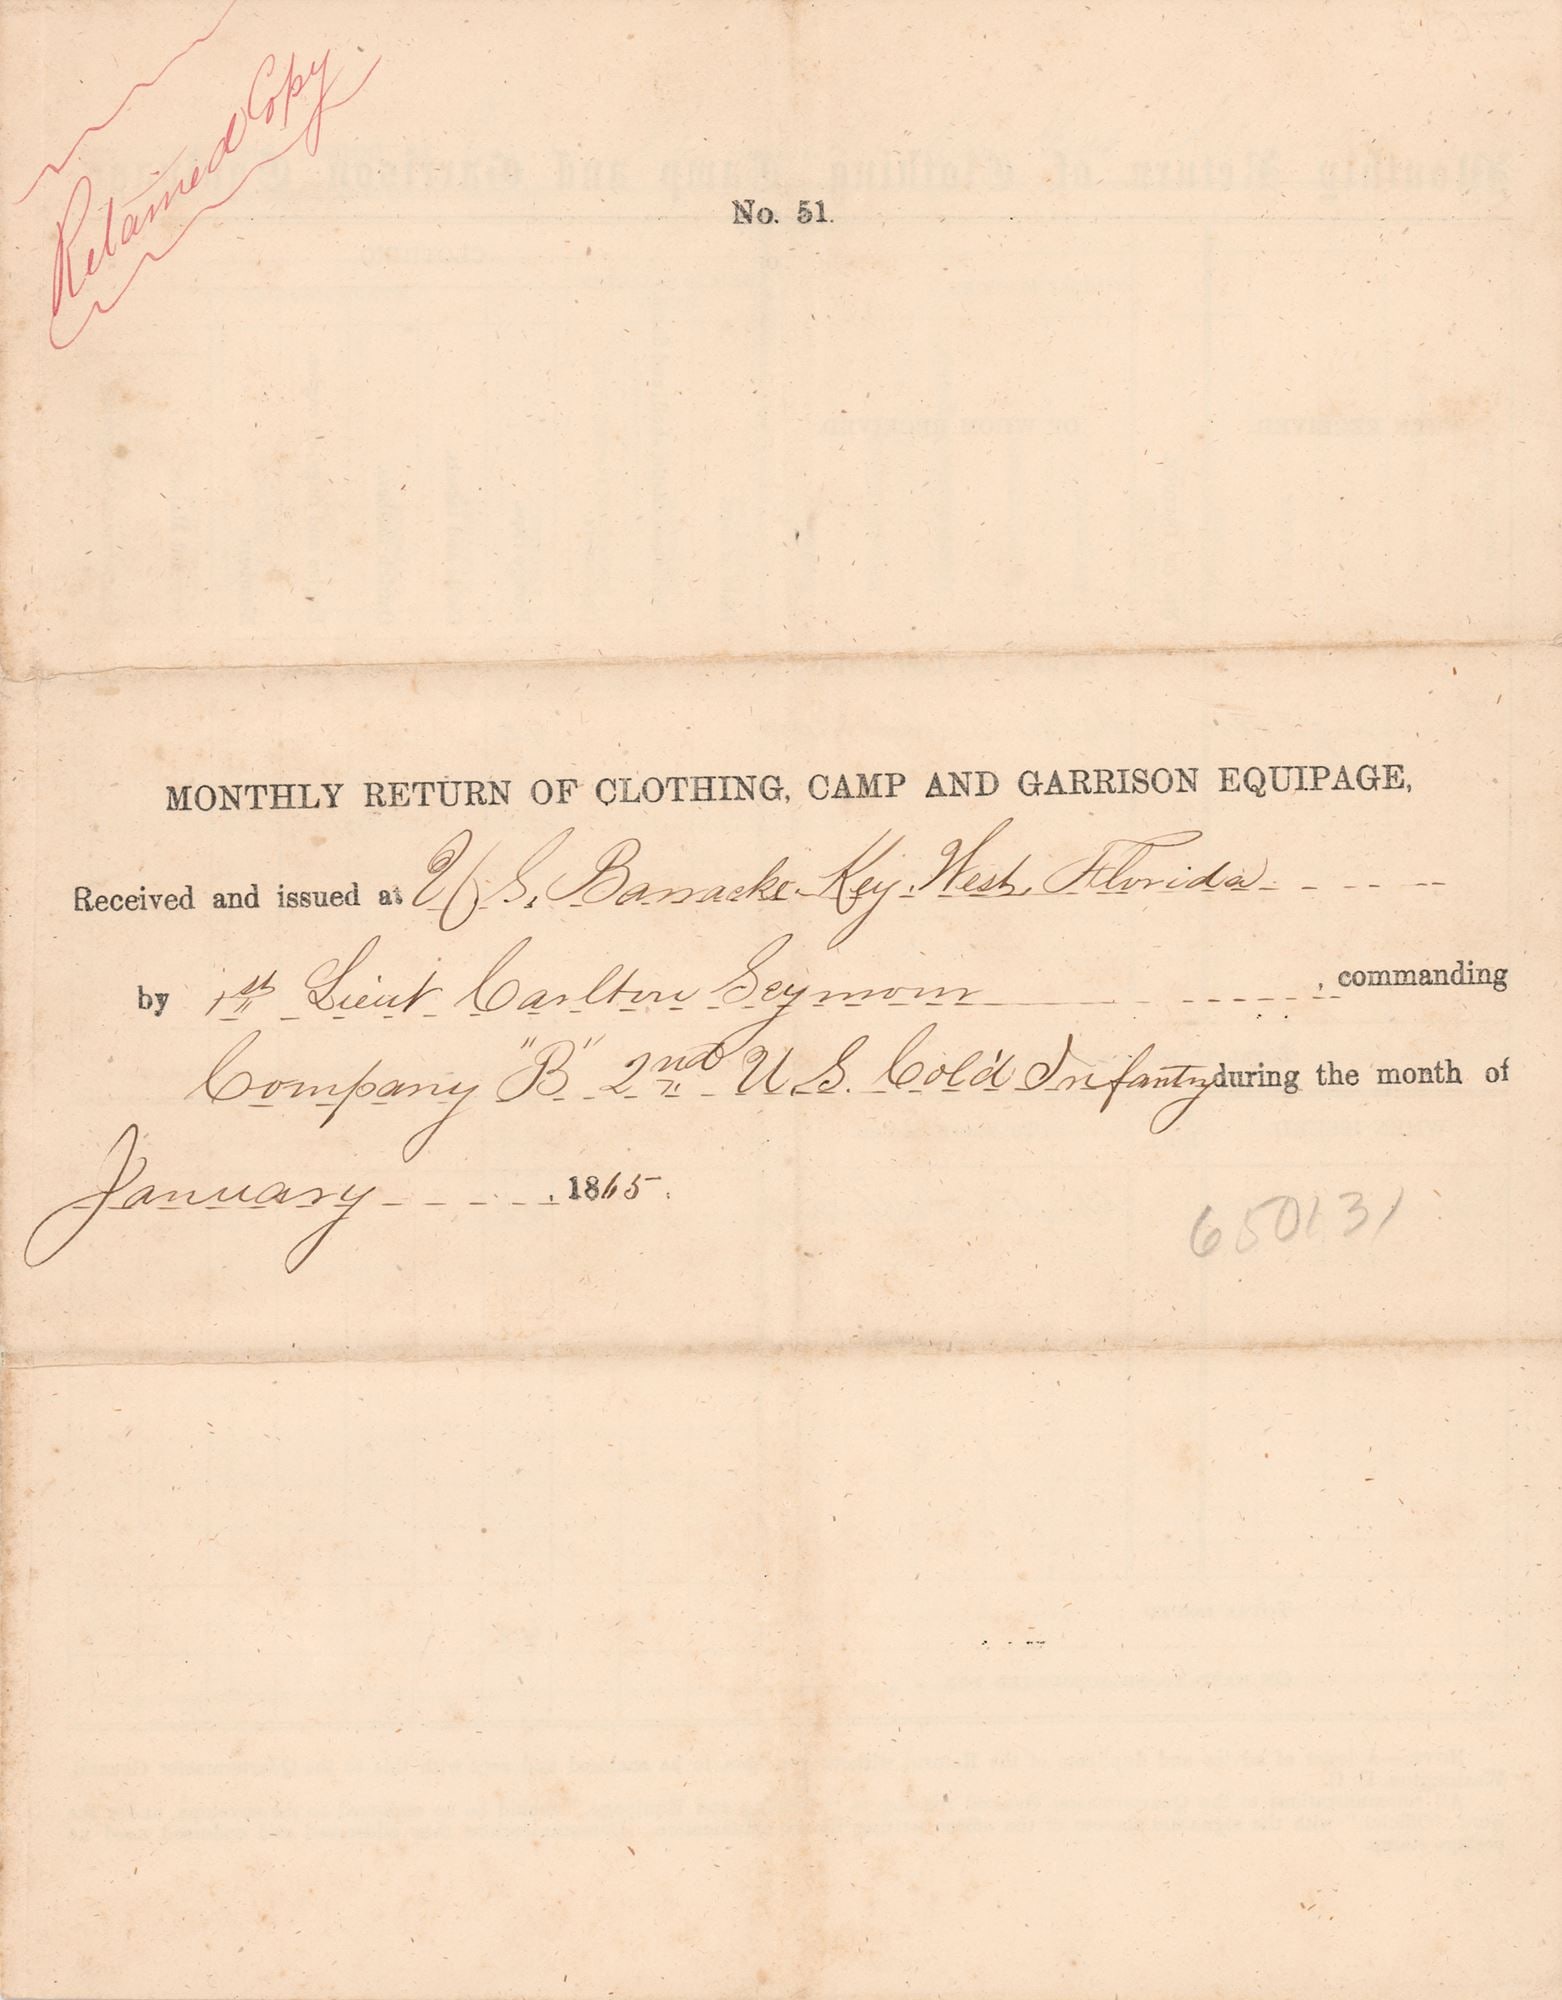 Retained Copy
No. 51.
MONTHLY RETURN OF CLOTHING, CAMP AND GARRISON EQUIPAGE,
Received and issued at U.S. Barracks. Key. West. Florida
by 1st Lieut Carlton Seymour, commanding
Company "B" 2nd U.S. Col'd Infantry during the month of
January, 1865.
650131